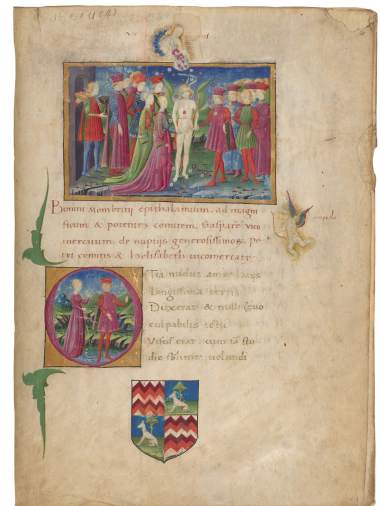 Bonini Mombritii epithalamium ad magni
ficum & potentem comitem Gaspare vico
mercatum de nuptijs generosissimo& pe
tri comitis & Helisabeth vicomercate.
OTia nudus amor
Longissima
Duxerat & nulli quo
culpabilis ictu
Visus erat cum ia stu
dio volandi